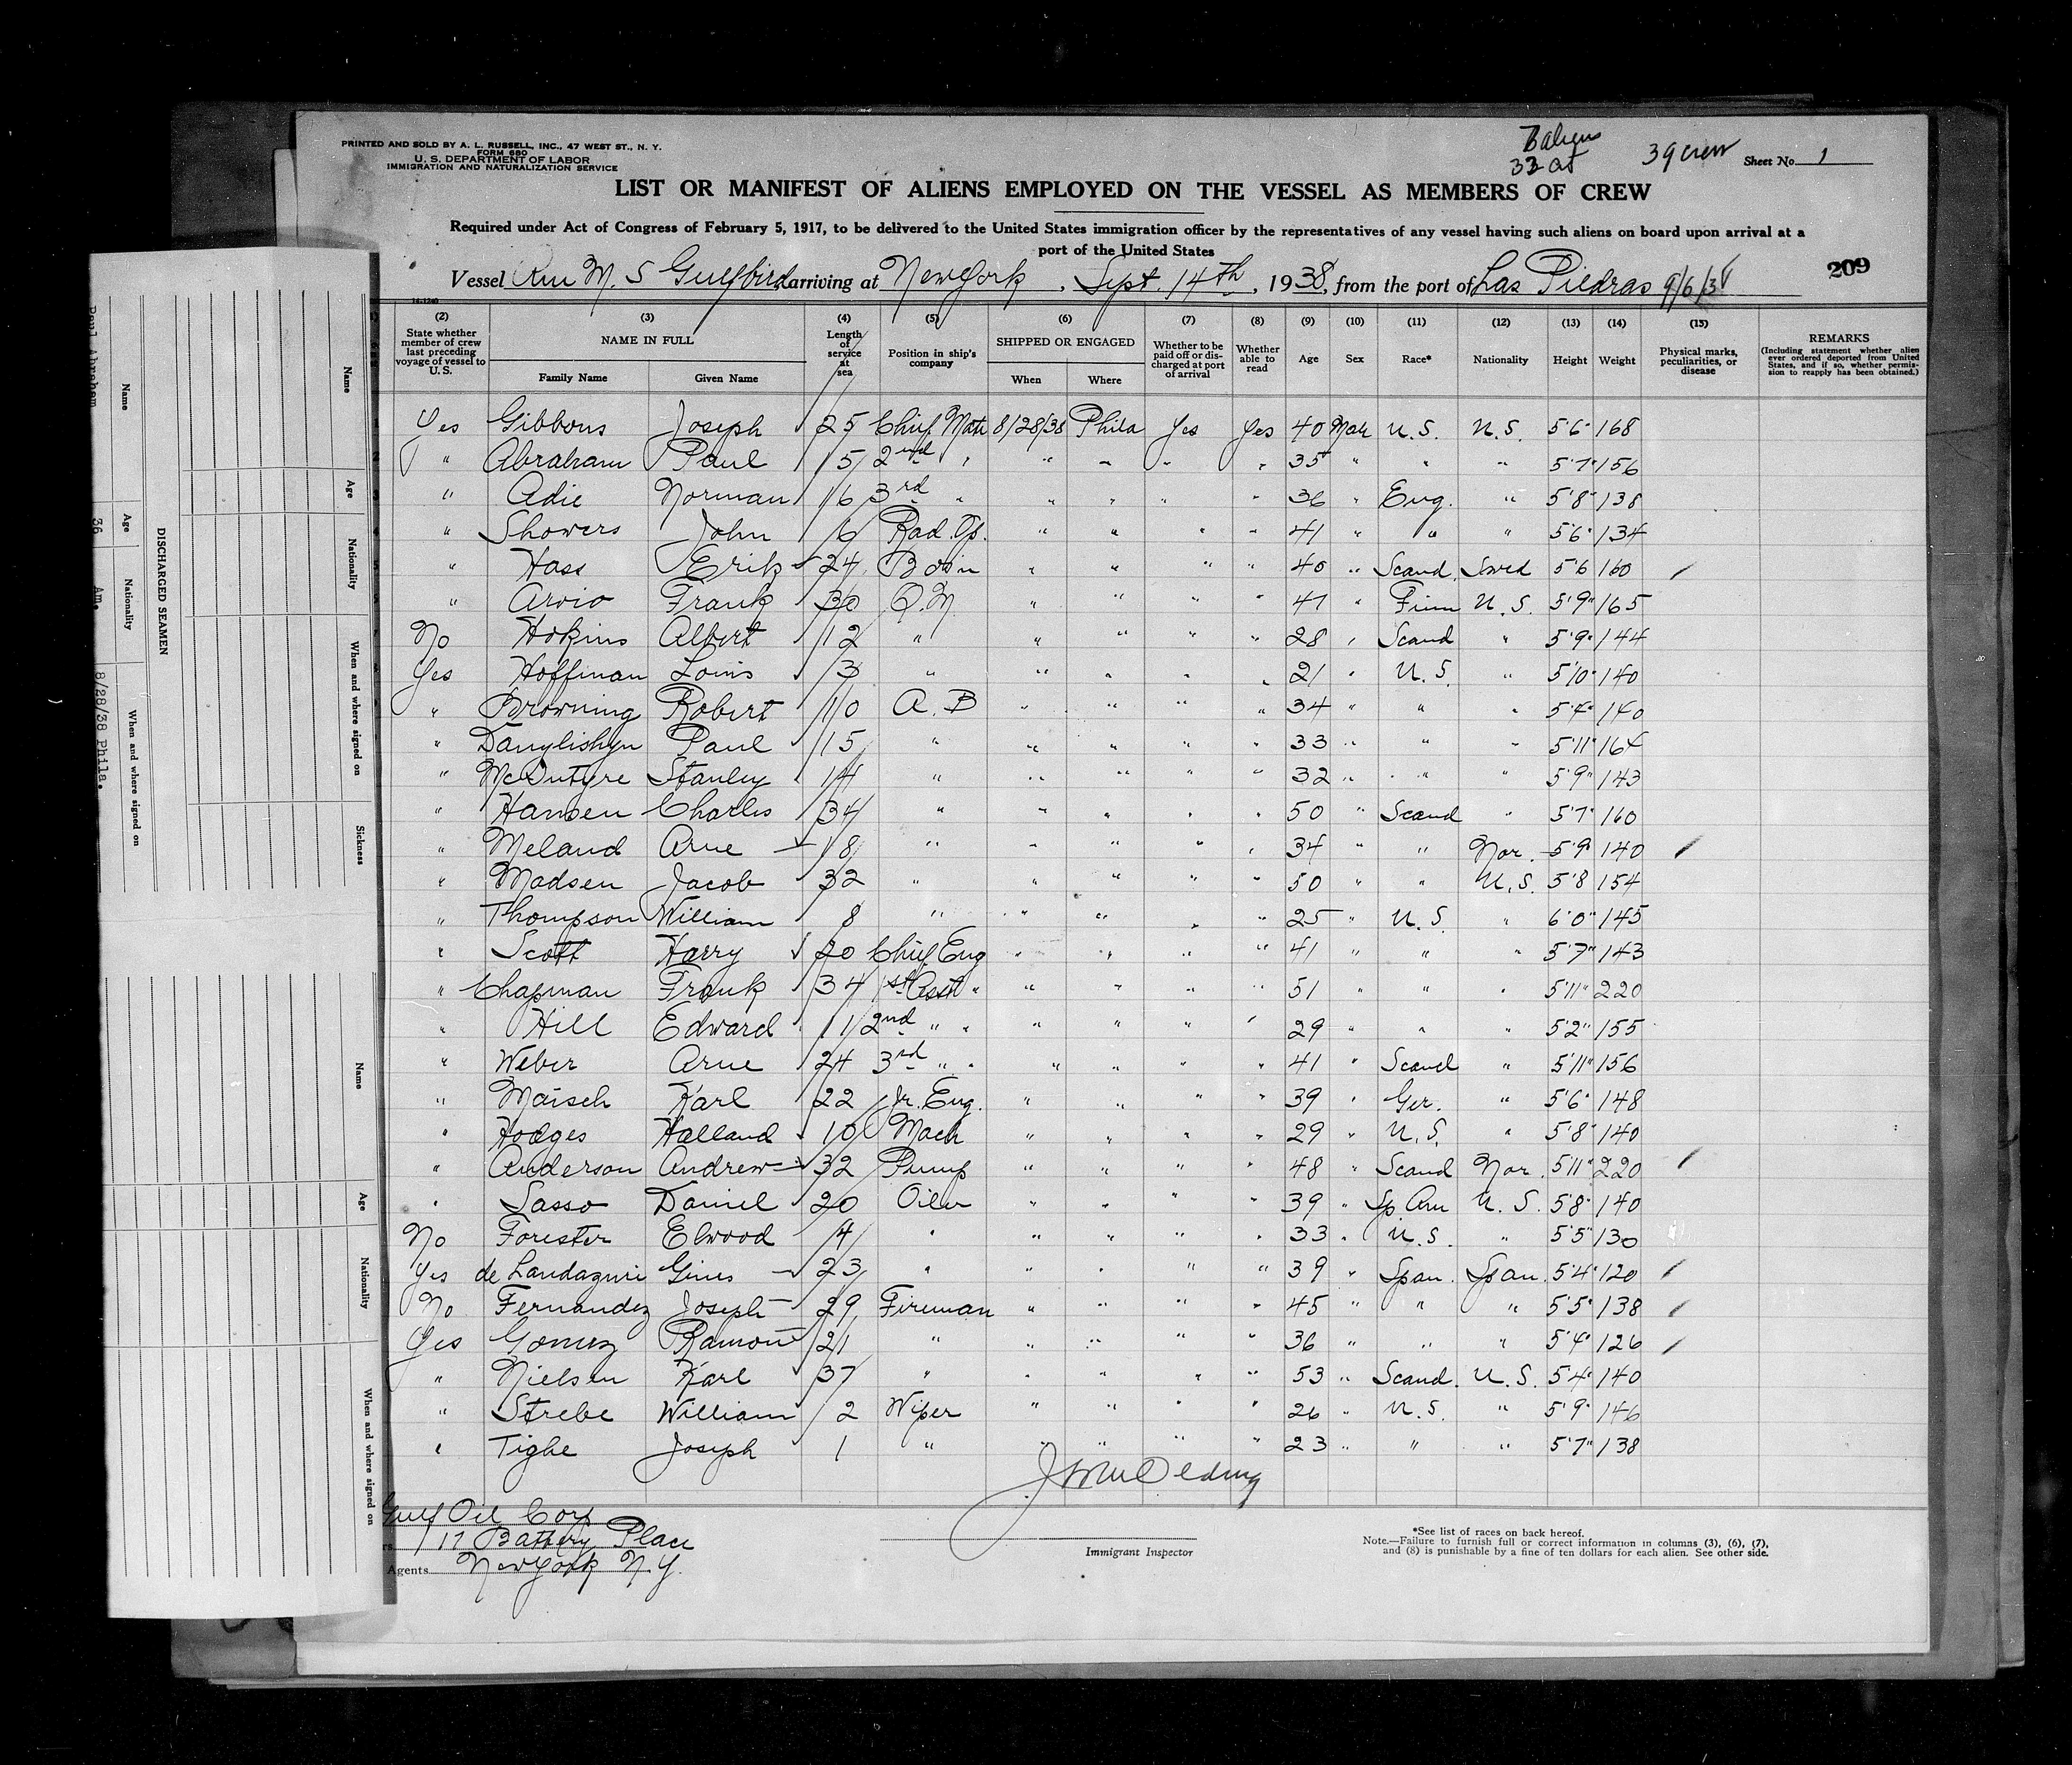 PRINTED AND SOLD BY A. L. RUSSELL, INC., 47 WEST ST., N. Y.
FORM 680
U. S. DEPARTMENT OF LABOR
IMMIGRATION AND NATURALIZATION SERVICE
7 aliens
32 as
39 crew
Sheet No. 1
LIST OR MANIFEST OF ALIENS EMPLOYED ON THE VESSEL AS MEMBERS OF CREW
Required under Act of Congress of February 5, 1917, to be delivered to the United States immigration officer by the representatives of any vessel having such aliens on board upon arrival at a
port of the United States
209
Vessel Am M. S Gulfbird arriving at New York, Sept. 14th, 1938, from the port of Las Piedras 9/6/38
(2) (3) (4) (5) (6) (7) (8) (9) (10) (11) (12) (13) (14) (15)
State whether member of crew last preceding voyage of vessel to U.S.
NAME IN FULL
Family Name Given Name
Length of service at sea
Position in ship's company
SHIPPED OR ENGAGED
When Where
Whether to be paid off or discharged at port of arrival
Whether able to read
Age Sex Race* Nationality Height Weight
Physical marks, peculiarities, or disease
REMARKS
(Including statement whether alien ever ordered deported from United States, and if so, whether permission to reapply has been obtained.)
1 Yes Gibbons Joseph 25 Chief Mate 8/28/38 Phila Yes Yes 40 Mar U.S. U.S. 5'6" 168
2 " Abraham Paul 15 2nd " " " " " 35 " " " 5'7" 156
3 " Adie Norman 16 3rd " " " " " 36 " Eng. " 5'8" 138
4 " Showers John 6 Rad. Op. " " " " 41 " " " 5'6" 134
5 " Hass Erik 24 Bosn " " " " 40 " Scand. Swed 5'6 160
" Arvio Frank 30 Q.M. " " " " 41 " Finn U.S. 5'9" 165
No Hokins Albert 12 " " " " " 28 " Scand " 5'9" 144
Yes Hoffman Louis 3 " " " " " 21 " U.S. " 5'10" 140
" Browning Robert 10 A.B " " " " 34 " " " 5'4" 140
" Danylishyn Paul 15 " " " " " 33 " " " 5'11" 164
" McIntyre Stanley 14 " " " " " 32 " " " 5'9" 143
" Hansen Charles 34 " " " " " 50 " Scand " 5'7" 160
" Meland Arne 18 " " " " " 34 " " Nor. 5'9" 140
" Madsen Jacob 32 " " " " " 50 " " U.S. 5'8 154
" Thompson William 8 " " " " " 25 " U.S. " 6'0" 145
" Scott Harry 20 Chief Eng " " " " 41 " " " 5'7" 143
" Chapman Frank 34 1st Asst " " " " " 51 " " " 5'11" 220
" Hill Edward 11 2nd " " " " " " 29 " " " 5'2" 155
" Weber Arne 24 3rd " " " " " " 41 " Scand " 5'11" 156
" Maisch Karl 22 Jr. Eng. " " " " 39 " Ger. " 5'6" 148
" Hodges Halland 10 Mach " " " " 29 " U.S. " 5'8" 140
" Anderson Andrew 32 Pump " " " " 48 " Scand Nor. 5'11" 220
" Sasso Daniel 20 Oiler " " " " 39 " Sp Am U.S. 5'8" 140
No Forester Elwood 4 " " " " " 33 " U.S. " 5'5" 130
Yes de Landazuri Gines 23 " " " " " 39 " Span. Span. 5'4" 120
No Fernandez Joseph 29 Fireman " " " " 45 " " " 5'5" 138
Yes Gomez Ramon 21 " " " " " 36 " " " 5'4" 126
" Nielsen Karl 37 " " " " " 53 " Scand. U.S. 5'4" 140
" Strebe William 2 Wiper " " " " 26 " U.S. " 5'9" 146
" Tighe Joseph 1 " " " " " 23 " " " 5'7" 138
Gulf Oil Corp
17 Battery Place
Agents New York N.Y.
Immigrant Inspector
*See list of races on back hereof.
Note.—Failure to furnish full or correct information in columns (3), (6), (7),
and (8) is punishable by a fine of ten dollars for each alien. See other side.
DISCHARGED SEAMEN
Name Age Nationality When and where signed on
Paul Abraham 36 Am. 8/28/38 Phila.
Name Age Nationality When and where signed on Sickness
Name Age Nationality When and where signed on